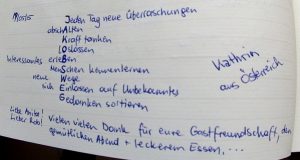 11/05/15 Jeden Tag neue Überraschungen
abschAlten
Kraft tanken
LOslassen
Interessantes erleBen
MenSchen kennenlernen
neue Wege
sich Einlassen auf Unbekanntes
Gedanken sortieren
Kathrin
aus Österreich
Liebe Anita!
Lieber Rob!
Vielen vielen Dank für eure Gastfreundschaft, den
gemütlichen Abend + leckerem Essen, ...